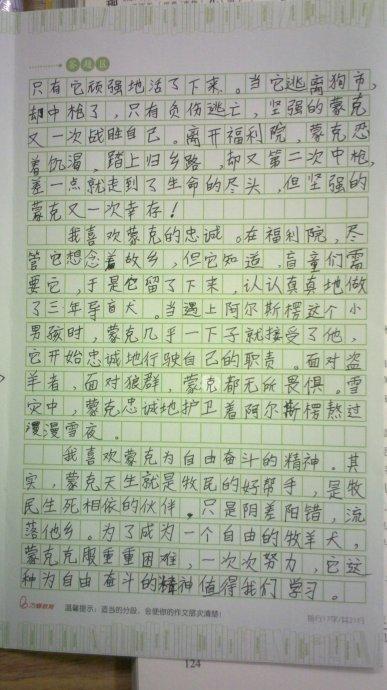 答题区
只有它顽强地活了下来。当它逃离狗市，
却中枪了，只有负伤逃亡，坚强的蒙克
又一次战胜自己。离开福利院，蒙克忍
着饥渴，踏上归乡路，却又第二次中枪，
差一点就走到了生命的尽头，但坚强的
蒙克又一次幸存！
我喜欢蒙克的忠诚。在福利院，尽
管它想念着故乡，但它知道，盲童们需
要它，于是它留了下来，认认真真地做
了三年导盲犬。当遇上阿尔斯楞这个小
男孩时，蒙克几乎一下子就接受了他，
它开始忠诚地行驶自己的职责。面对盗
羊者，面对狼群，蒙克都无所畏惧。雪
灾中，蒙克忠诚地护卫着阿尔斯楞熬过
漫漫雪夜。
我喜欢蒙克为自由奋斗的精神。其
实，蒙克天生就是牧民的好帮手，是牧
民生死相依的伙伴。只是阴差阳错，流
落他乡。为了成为一个自由的牧羊犬，
蒙克克服重重困难，一次次努力，它这
种为自由奋斗的精神值得我们学习。
温馨提示：适当的分段，会使你的作文层次清楚！
每行17字/共21行
124